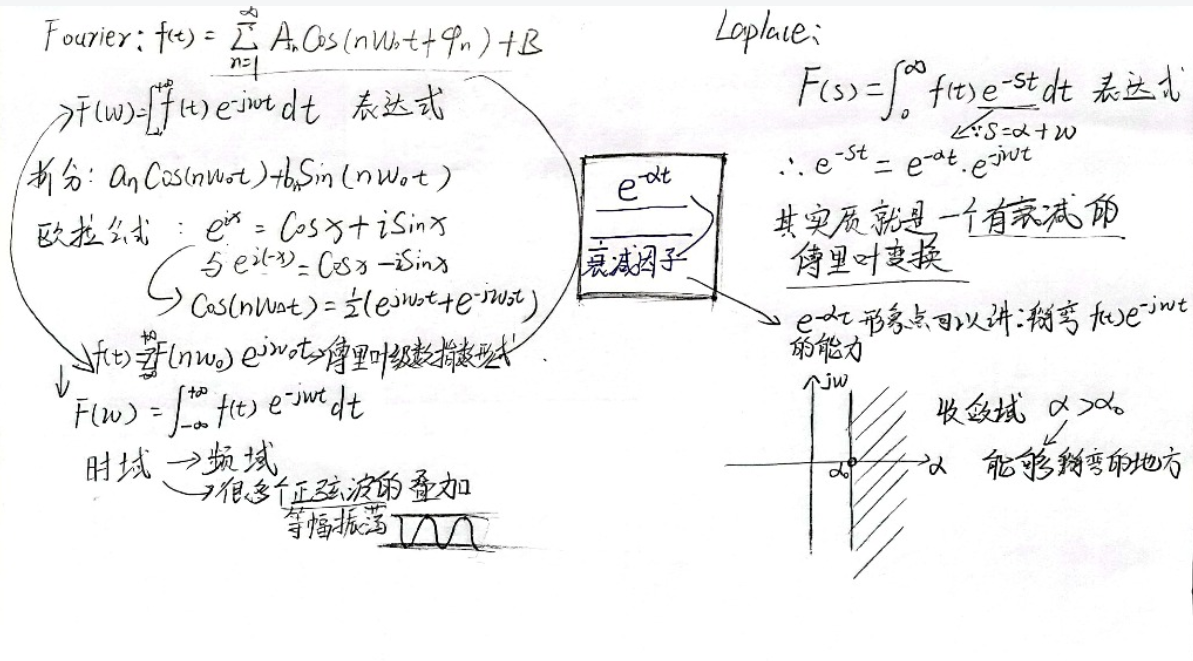 Fourier: f(t) = ∞ Σ n=1 Aₙ Cos(nω₀t + φₙ) + B
F(ω) = ∫ +∞ f(t) e^-jωt dt 表达式
拆分: aₙ Cos(nω₀t) + bₙ Sin(nω₀t)
欧拉公式 : e^ix = Cosx + iSinx
与 e^i(-x) = Cosx - iSinx
Cos(nω₀t) = 1/2 (e^jω₀t + e^-jω₀t)
f(t) = +∞ Σ -∞ F(nω₀) e^jω₀t → 傅里叶级数指数形式
F(ω) = ∫ +∞ -∞ f(t) e^-jωt dt
时域 → 频域
→ 很多个正弦波的叠加
等幅振荡
e^-αt
衰减因子
Laplace:
F(s) = ∫ ∞ 0 f(t) e^-st dt 表达式
∵ S = α + ω
∴ e^-st = e^-αt · e^-jωt
其实质就是一个有衰减的
傅里叶变换
e^-αt 形象点可以讲: 掰弯 f(t)e^-jωt
的能力
jω
收敛域 α > α₀
α₀ α 能够掰弯的地方